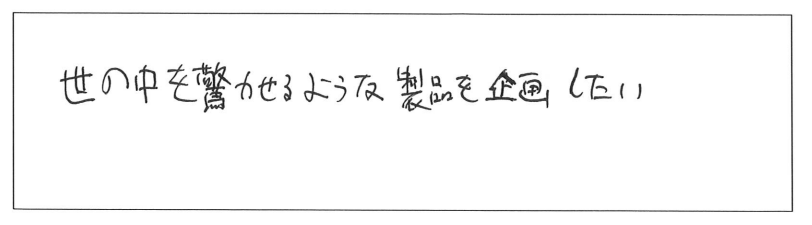 世の中を驚かせるような製品を企画したい